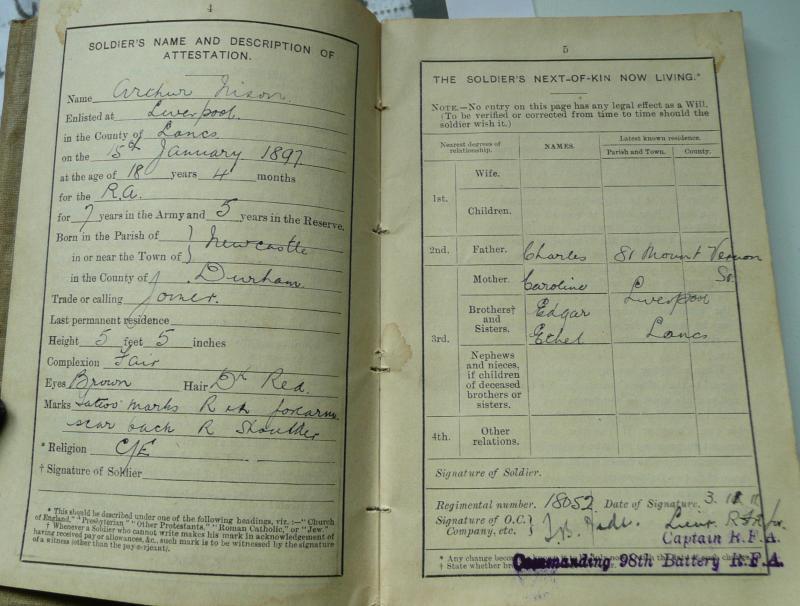 4
SOLDIER'S NAME AND DESCRIPTION OF
ATTESTATION.
Name Arthur Nixon
Enlisted at Liverpool
in the County of Lancs
on the 15th January 1897
at the age of 18 years 4 months
for the R.A.
for 7 years in the Army and 5 years in the Reserve.
Born in the Parish of } Newcastle
in or near the Town of }
in the County of Durham
Trade or calling Joiner.
Last permanent residence
Height 5 feet 5 inches
Complexion Fair
Eyes Brown Hair Dk Red.
Marks Tattoo marks R forearm
scar back R Shoulder
* Religion C/E
† Signature of Soldier
* This should be described under one of the following headings, viz.:—"Church
of England," "Presbyterian," "Other Protestants," "Roman Catholic," or "Jew."
† Whenever a Soldier who cannot write makes his mark in acknowledgement of
having received pay or allowances, &c., such mark is to be witnessed by the signature
of a witness (other than the pay-sergeant).
5
THE SOLDIER'S NEXT-OF-KIN NOW LIVING.*
NOTE.—No entry on this page has any legal effect as a Will.
(To be verified or corrected from time to time should the
soldier wish it.)
Nearest degrees of
relationship.
NAMES.
Latest known residence.
Parish and Town. County.
1st.
Wife.
Children.
2nd. Father. Charles 81 Mount Vernon
St.
3rd.
Mother. Caroline Liverpool
Brothers† Edgar
and
Sisters. Ethel Lancs
Nephews
and nieces,
if children
of deceased
brothers or
sisters.
4th. Other
relations.
Signature of Soldier.
Regimental number. 18052 Date of Signature. 3.
Signature of O.C. }
Company, etc. } Lieut.
Captain R.F.A.
* Any change
† State whether
Commanding 98th Battery R.F.A.